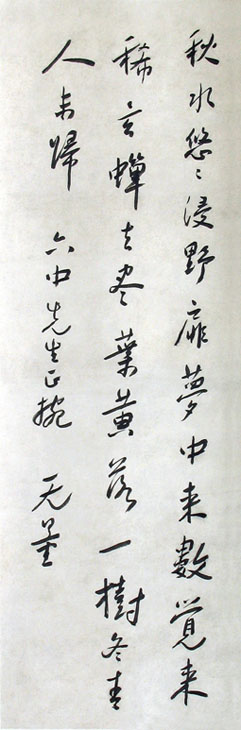 秋水悠〻浸野扉夢中来數覚来
稀玄蟬去尽葉黄落一樹冬青
人未歸 六中先生正捥 无量